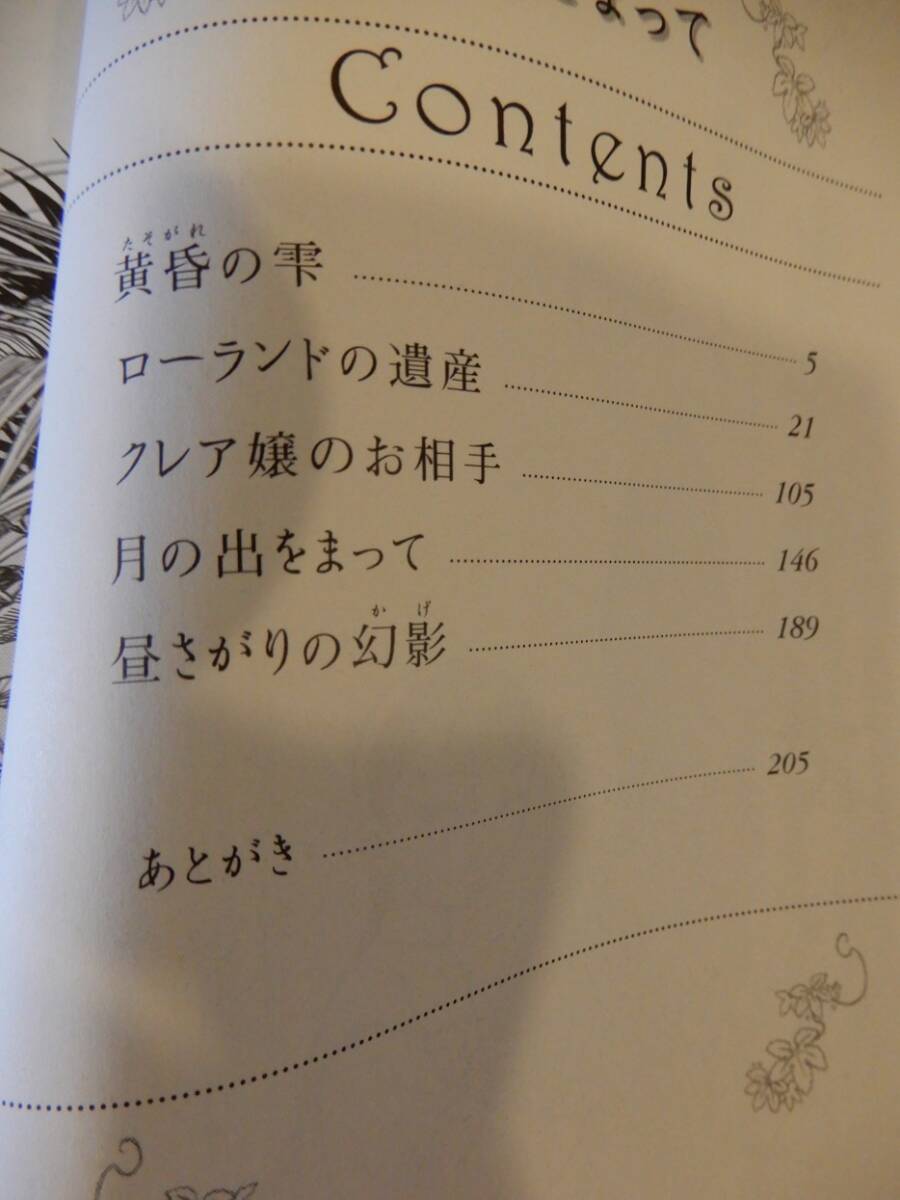 まって
Contents
たそがれ
黄昏の雫 5
ローランドの遺産 21
クレア嬢のお相手 105
月の出をまって 146
かげ
昼さがりの幻影 189
あとがき 205